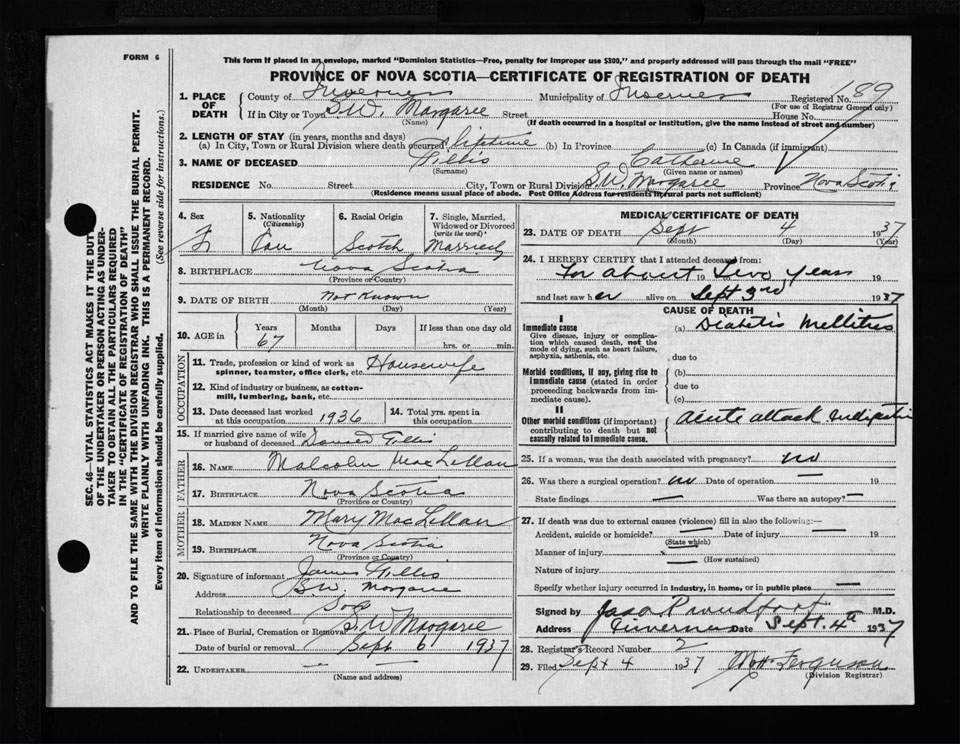 FORM 6
This form if placed in an envelope, marked "Dominion Statistics—Free, penalty for improper use $300," and properly addressed will pass through the mail "FREE"
PROVINCE OF NOVA SCOTIA—CERTIFICATE OF REGISTRATION OF DEATH
1. PLACE OF DEATH
County of Inverness Municipality of Inverness Registered No. 189
(For use of Registrar General only)
If in City or Town S.W. Margaree Street House No.
(Name) (If death occurred in a hospital or institution, give the name instead of street and number)
2. LENGTH OF STAY (in years, months and days)
(a) In City, Town or Rural Division where death occurred lifetime (b) In Province (c) In Canada (if immigrant)
3. NAME OF DECEASED Gillis Catherine
(Surname) (Given name or names)
RESIDENCE No. Street City, Town or Rural Division S.W. Margaree Province Nova Scotia
(Residence means usual place of abode. Post Office Address for residents in rural parts not sufficient)
4. Sex F
5. Nationality (Citizenship) Can
6. Racial Origin Scotch
7. Single, Married, Widowed or Divorced (write the word) Married
8. BIRTHPLACE Nova Scotia
(Province or Country)
9. DATE OF BIRTH Not Known
(Month) (Day) (Year)
10. AGE in Years 67 Months Days If less than one day old
hrs. or min.
OCCUPATION
11. Trade, profession or kind of work as spinner, teamster, office clerk, etc. Housewife
12. Kind of industry or business, as cotton-mill, lumbering, bank, etc.
13. Date deceased last worked at this occupation 1936
14. Total yrs. spent in this occupation
15. If married give name of wife or husband of deceased Donald Gillis
FATHER
16. NAME Malcolm MacLellan
17. BIRTHPLACE Nova Scotia
(Province or Country)
MOTHER
18. MAIDEN NAME Mary MacLellan
19. BIRTHPLACE Nova Scotia
(Province or Country)
20. Signature of informant James Gillis
Address S.W. Margaree
Relationship to deceased Son
21. Place of Burial, Cremation or Removal S.W Margaree
Date of burial or removal Sept 6 1937
22. UNDERTAKER
(Name and address)
MEDICAL CERTIFICATE OF DEATH
23. DATE OF DEATH Sept 4 1937
(Month) (Day) (Year)
24. I HEREBY CERTIFY that I attended deceased from:
For about 19 two years 19
and last saw her alive on Sept 3rd 1937
CAUSE OF DEATH
I
Immediate cause (a) Diabetis Mellitus
Give disease, injury or complication which caused death, not the mode of dying, such as heart failure, asphyxia, asthenia, etc.
due to
Morbid conditions, if any, giving rise to immediate cause (stated in order proceeding backwards from immediate cause).
(b)
due to
(c)
II
Other morbid conditions (if important) contributing to death but not causally related to immediate cause.
Acute attack
25. If a woman, was the death associated with pregnancy? no
26. Was there a surgical operation? no Date of operation 19
State findings Was there an autopsy?
27. If death was due to external causes (violence) fill in also the following:
Accident, suicide or homicide? Date of injury 19
(State which)
Manner of injury
(How sustained)
Nature of injury
Specify whether injury occurred in industry, in home, or in public place
Signed by M.D.
Address Inverness Date Sept. 4th 1937
28. Registrar's Record Number 2
29. Filed Sept 4 1937 Ferguson
(Division Registrar)
SEC. 46—VITAL STATISTICS ACT MAKES IT THE DUTY
OF THE UNDERTAKER OR PERSON ACTING AS UNDER-
TAKER TO OBTAIN ALL THE PARTICULARS REQUIRED
IN THE "CERTIFICATE OF REGISTRATION OF DEATH"
AND TO FILE THE SAME WITH THE DIVISION REGISTRAR WHO SHALL ISSUE THE BURIAL PERMIT.
WRITE PLAINLY WITH UNFADING INK. THIS IS A PERMANENT RECORD.
Every item of information should be carefully supplied. (See reverse side for instructions.)